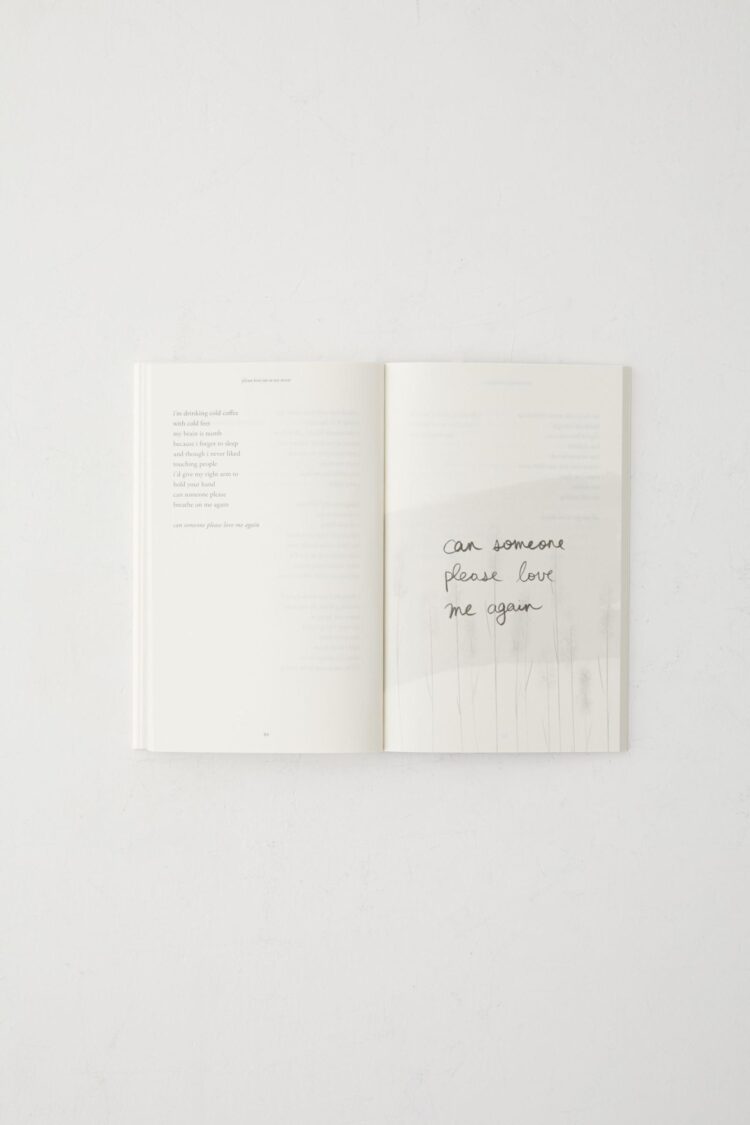 please love me at my worst
i'm drinking cold coffee
with cold feet
my brain is numb
because i forget to sleep
and though i never liked
touching people
i'd give my right arm to
hold your hand
can someone please
breathe on me again
can someone please love me again
can someone
please love
me again